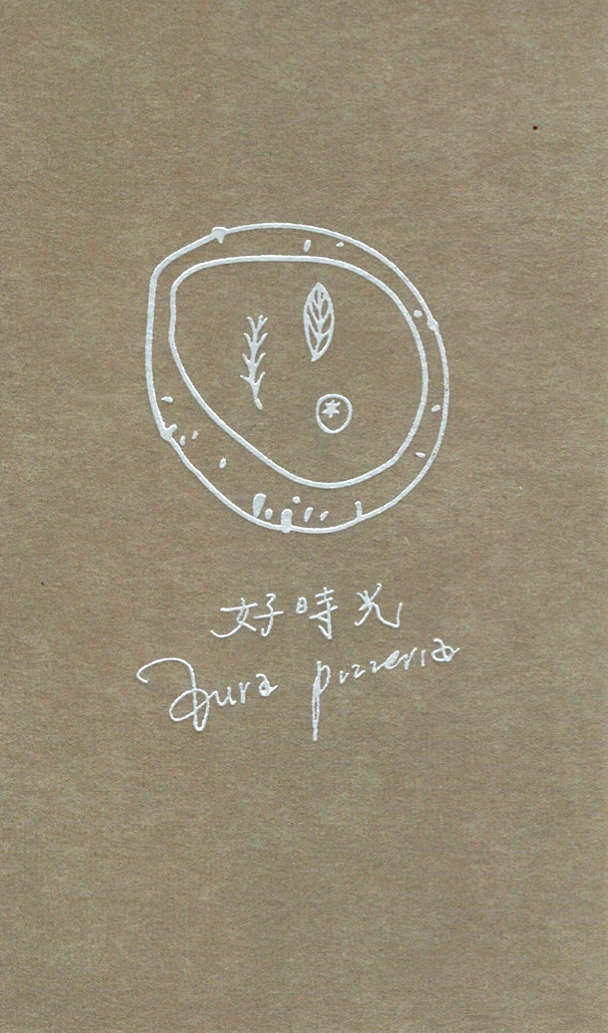 好時光
Aura pizzeria